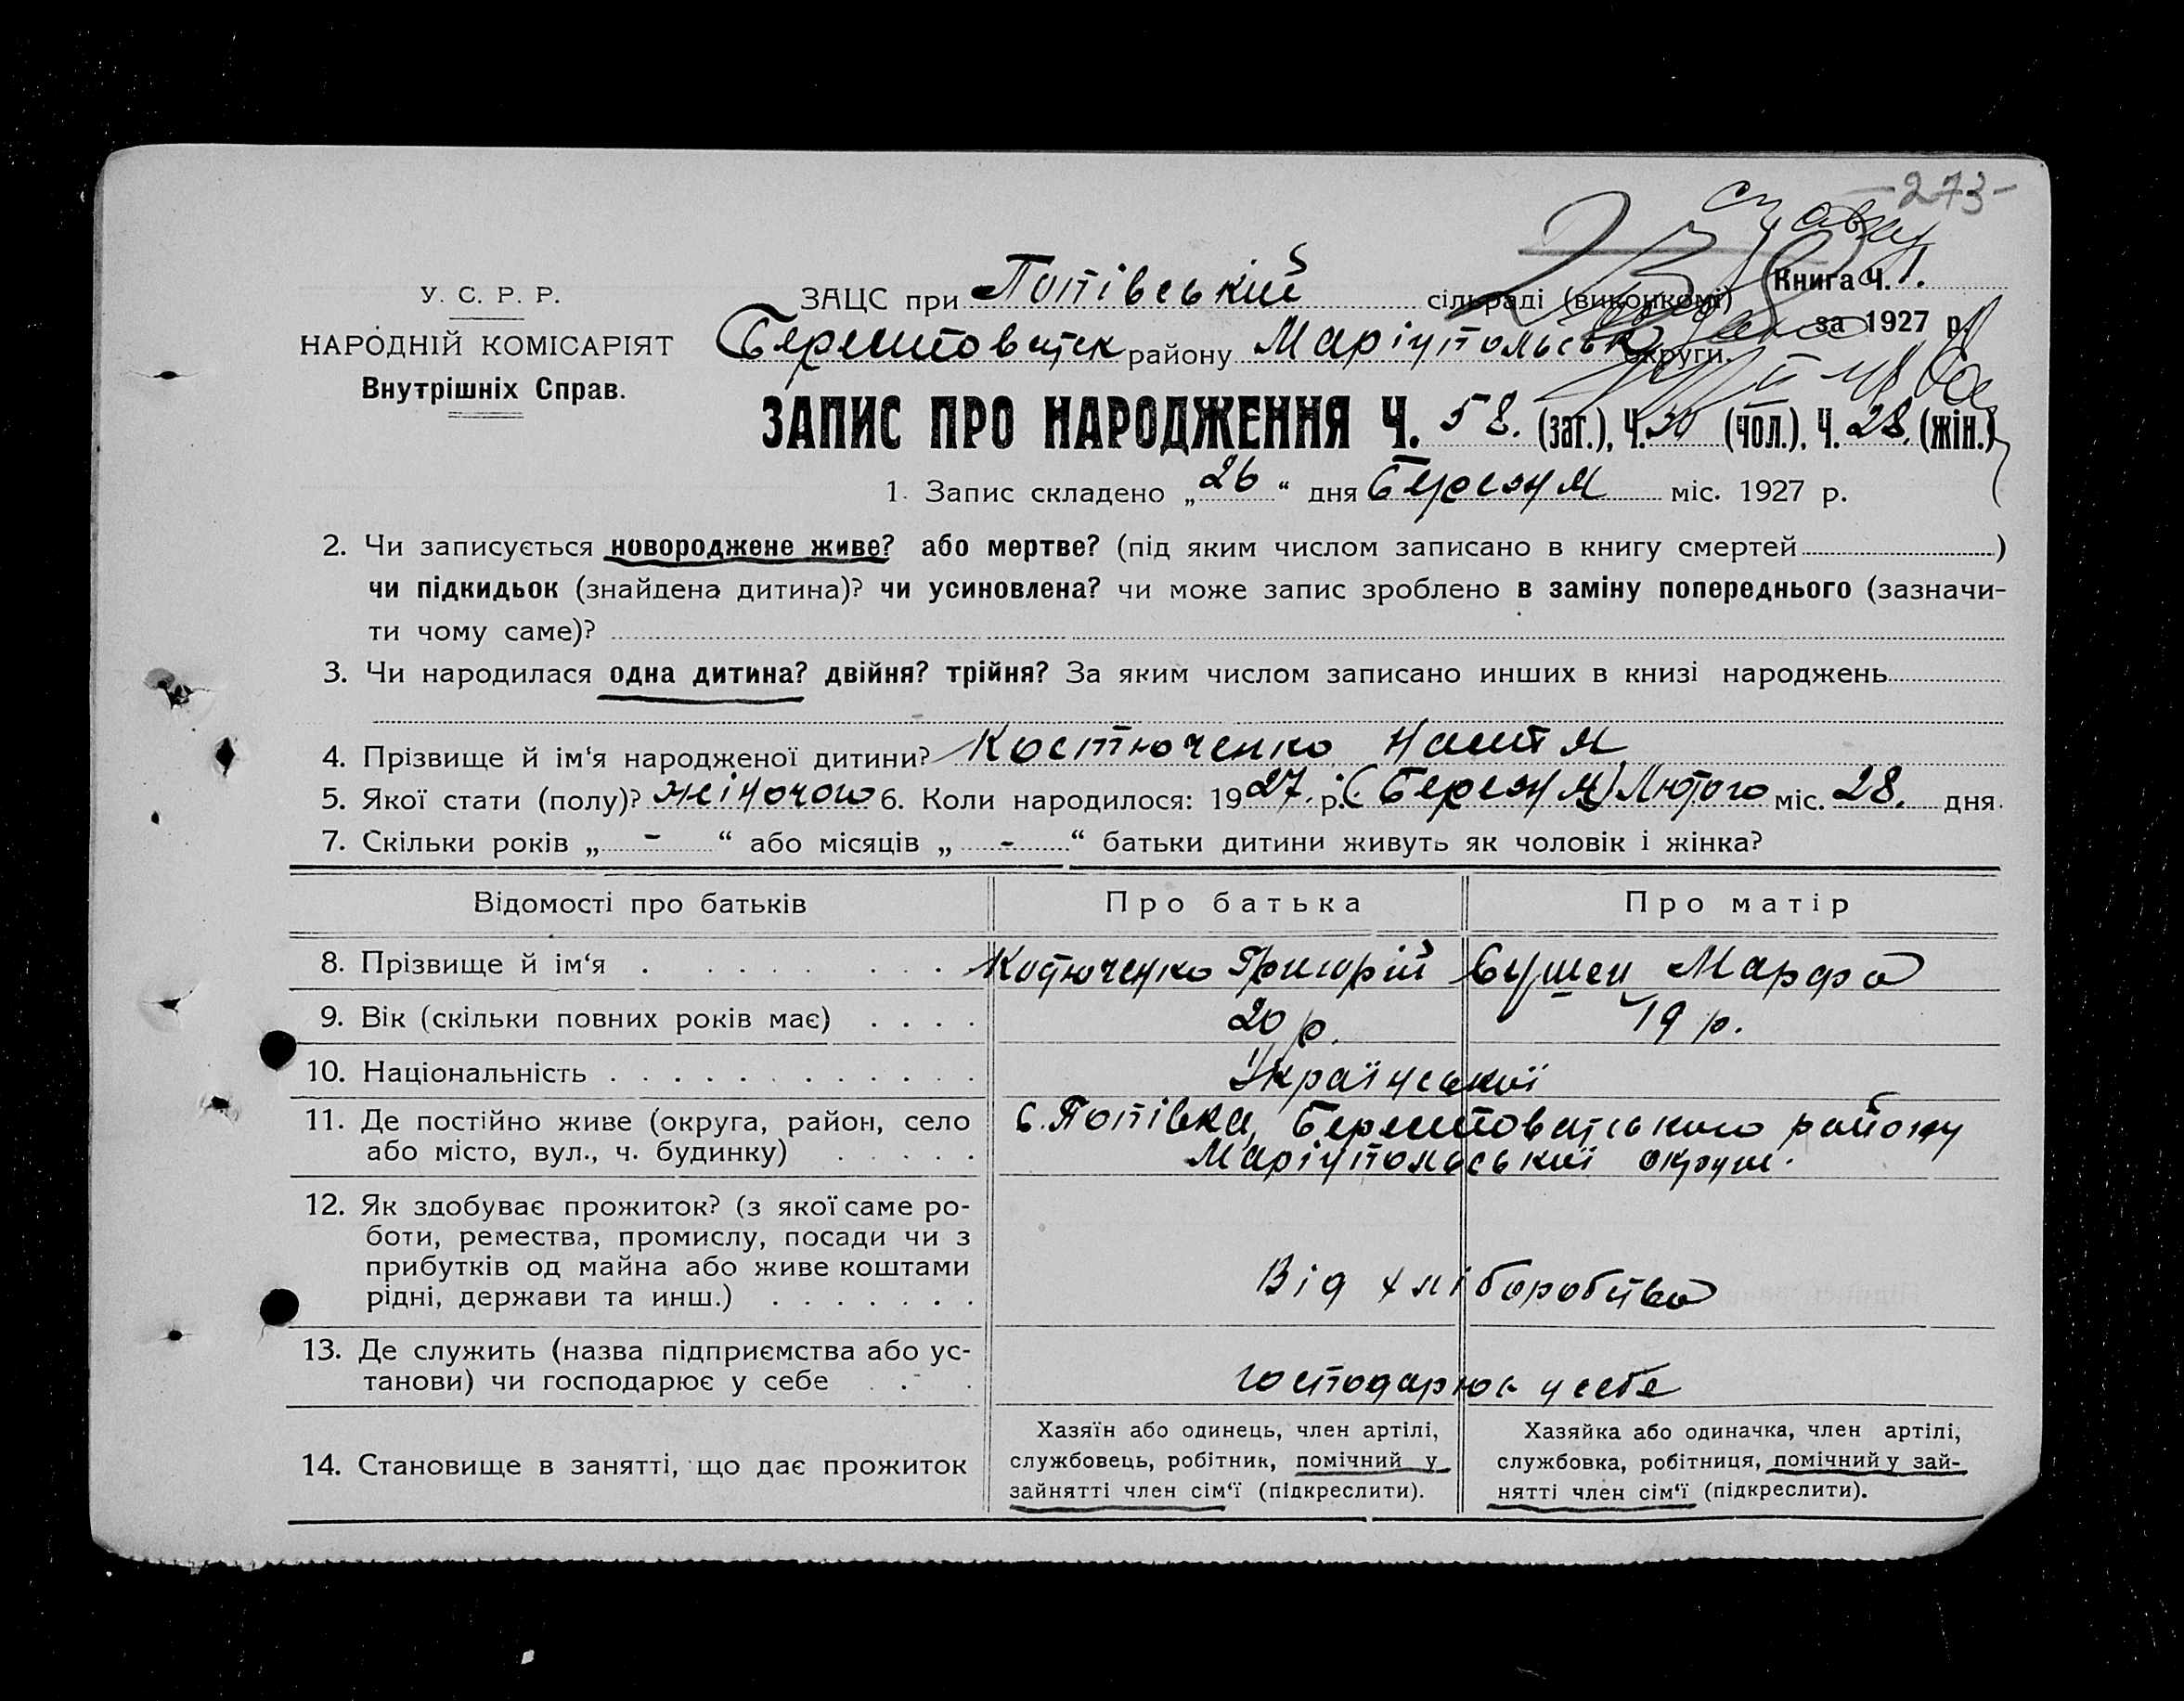 -273-
справку
Книга Ч. 1.
У. С. Р. Р.
ЗАЦС при Попівській сільраді (виконкомі)
за 1927 р.
НАРОДНІЙ КОМІСАРІЯТ
Берестоватск району Маріупольськ округи.
Внутрішніх Справ.
ЗАПИС ПРО НАРОДЖЕННЯ Ч. 58. (заг.), Ч. 30 (чол.), Ч. 28. (жін.)
1. Запис складено „26“ дня Березня міс. 1927 р.
2. Чи записується новороджене живе? або мертве? (під яким числом записано в книгу смертей )
чи підкидьок (знайдена дитина)? чи усиновлена? чи може запис зроблено в заміну попереднього (зазначи-
ти чому саме)?
3. Чи народилася одна дитина? двійня? трійня? За яким числом записано инших в книзі народжень
4. Прізвище й ім‘я народженої дитини? Костюченко Настя
5. Якої стати (полу)? жіночого 6. Коли народилося: 1927. р. (Березня) Лютого міс. 28. дня.
7. Скільки років „ - “ або місяців „ - “ батьки дитини живуть як чоловік і жінка?
Відомості про батьків Про батька Про матір
8. Прізвище й ім‘я . . . . . . . . Костюченко Григорій Марфа
9. Вік (скільки повних років має) . . . . 20 р. 19 р.
10. Національність . . . . . . . . . . . . . Української
11. Де постійно живе (округа, район, село с. Попівка, Берестоватського району
або місто, вул., ч. будинку) . . . . . Маріупольської округи.
12. Як здобуває прожиток? (з якої саме ро-
боти, ремества, промислу, посади чи з
прибутків од майна або живе коштами
рідні, держави та инш.) . . . . . . . Від хліборобства
13. Де служить (назва підприємства або ус-
танови) чи господарює у себе . . . господарює у себе
Хазяїн або одинець, член артілі, Хазяйка або одиначка, член артілі,
14. Становище в занятті, що дає прожиток службовець, робітник, помічний у службовка, робітниця, помічний у зай-
зайнятті член сім‘ї (підкреслити). нятті член сім‘ї (підкреслити).